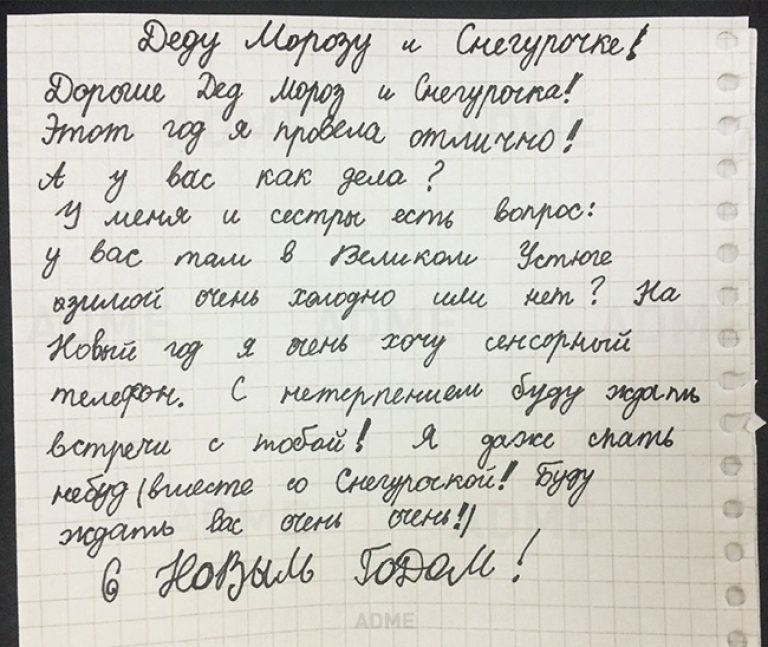 Деду Морозу и Снегурочке!
Дорогие Дед Мороз и Снегурочка!
Этот год я провела отлично!
А у вас как дела?
У меня и сестры есть вопрос:
у вас там в Великом Устюге
зимой очень холодно или нет? На
Новый год я очень хочу сенсорный
телефон. С нетерпением буду ждать
встречи с тобой! Я даже спать
небуд(вместе со Снегурочкой! Буду
ждать вас очень очень!)
С НОВЫМЬ ГОДОМ!
ADME